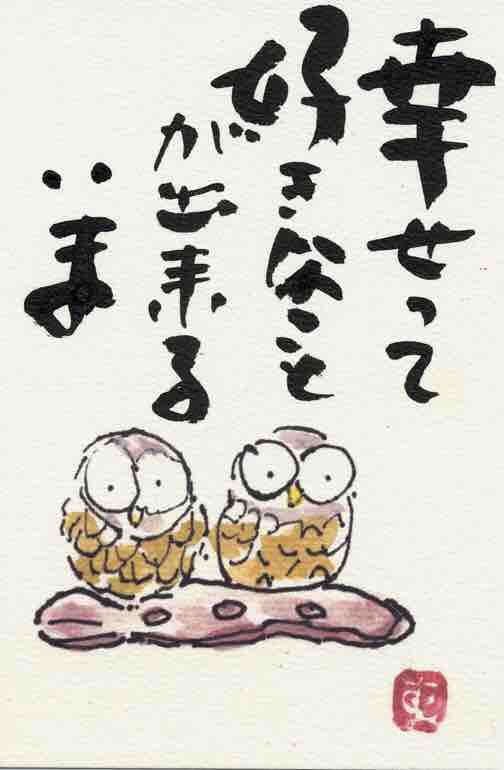 幸せって
好きなこと
が出来る
いま